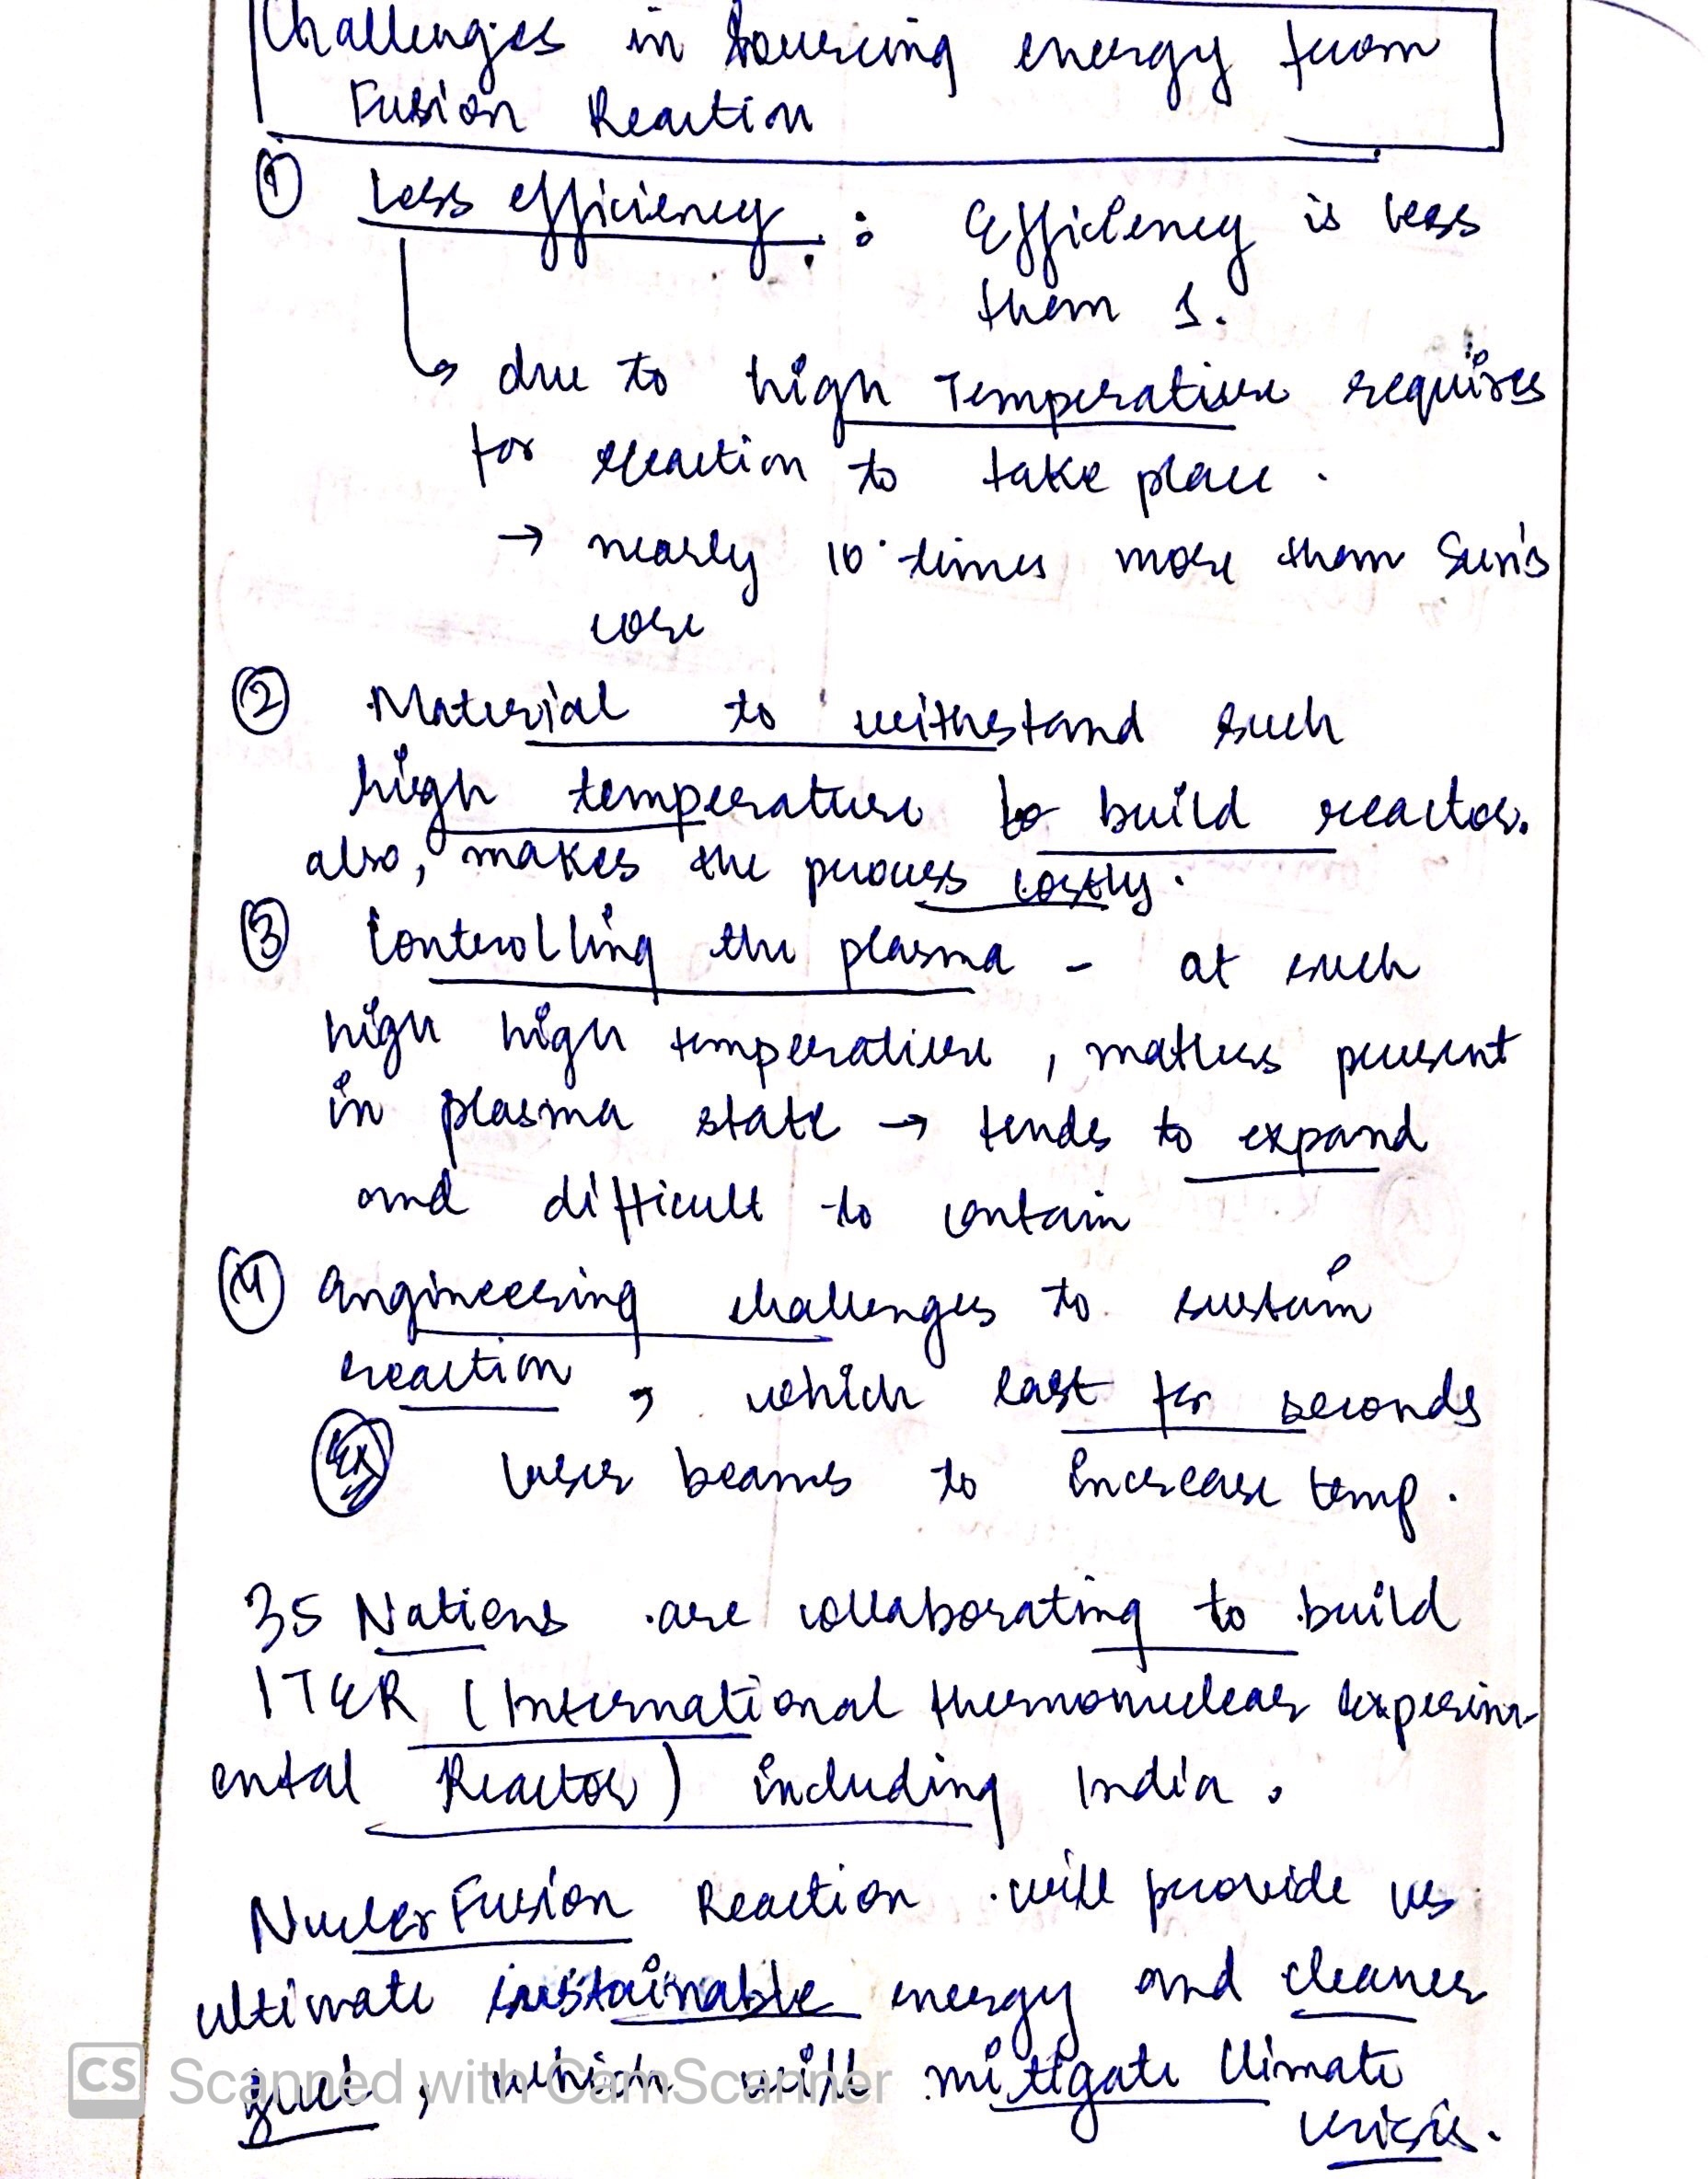 Challenges in Sourcing energy from
Fusion Reaction
① Less efficiency : Efficiency is less
than 1.
↳ due to high Temperature requires
for reaction to take place.
→ nearly 10 times more than Sun's
core
② Material to withstand such
high temperature to build reactor.
also, makes the process costly.
③ Controlling the plasma - at such
high high temperature, matters present
in plasma state → tends to expand
and difficult to contain
④ Engineering challenges to sustain
reaction, which last for seconds
Ex laser beams to increase temp.
35 Nations are collaborating to build
ITER (International thermonuclear Experim-
ental Reactor) including India.
Nucler Fusion Reaction will provide us
ultimate sustainable energy and cleaner
fuel, which will mitigate Climate
crisis.
CS Scanned with CamScanner